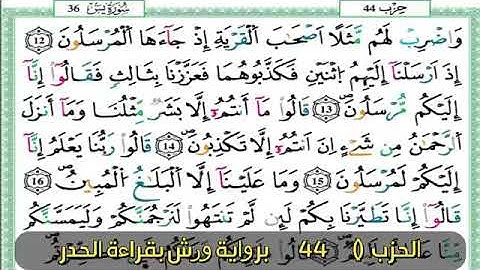 حِزب 44
سُورَةُ يسٓ 36
وَاضْرِبْ لَهُم مَّثَلًا اَصْحَٰبَ اَلْقَرْيَةِ إِذْ جَآءَهَا اَلْمُرْسَلُونَ 12
إِذَ اَرْسَلْنَآ إِلَيْهِمُ اُثْنَيْنِ فَكَذَّبُوهُمَا فَعَزَّزْنَا بِثَالِثٍ فَقَالُوٓاْ إِنَّآ
إِلَيْكُم مُّرْسَلُونَ 13 قَالُواْ مَآ أَنتُمُۥٓ إِلَّا بَشَرٌ مِّثْلُنَا وَمَآ أَنزَلَ
اَلرَّحْمَٰنُ مِن شَےْءٍ اِنَ اَنتُمُۥٓ إِلَّا تَكْذِبُونَ 14 قَالُواْ رَبُّنَا يَعْلَمُ إِنَّآ
إِلَيْكُمْ لَمُرْسَلُونَ 15 وَمَا عَلَيْنَآ إِلَّا اَلْبَلَٰغُ اُلْمُبِينُ 16
قَالُوٓاْ إِنَّا تَطَيَّرْنَا بِكُمْ لَئِن لَّمْ تَنتَهُواْ لَنَرْجُمَنَّكُمْ وَلَيَمَسَّنَّكُم
الحزب () 44 برواية ورش بقراءة الحدر